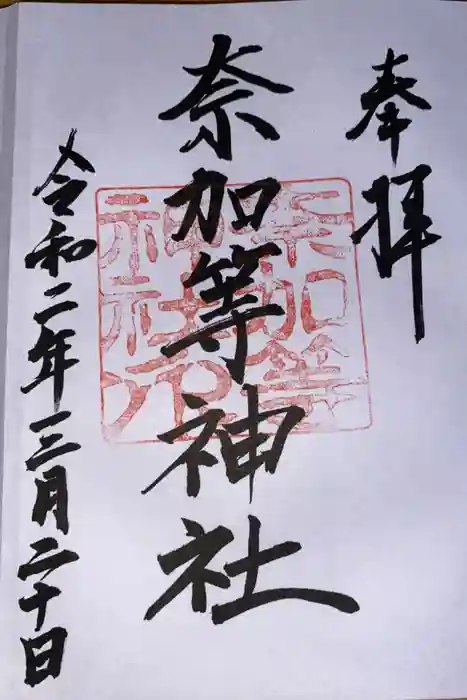 奉拝
奈加等神社
奈加等
神社印
令和二年三月二十日